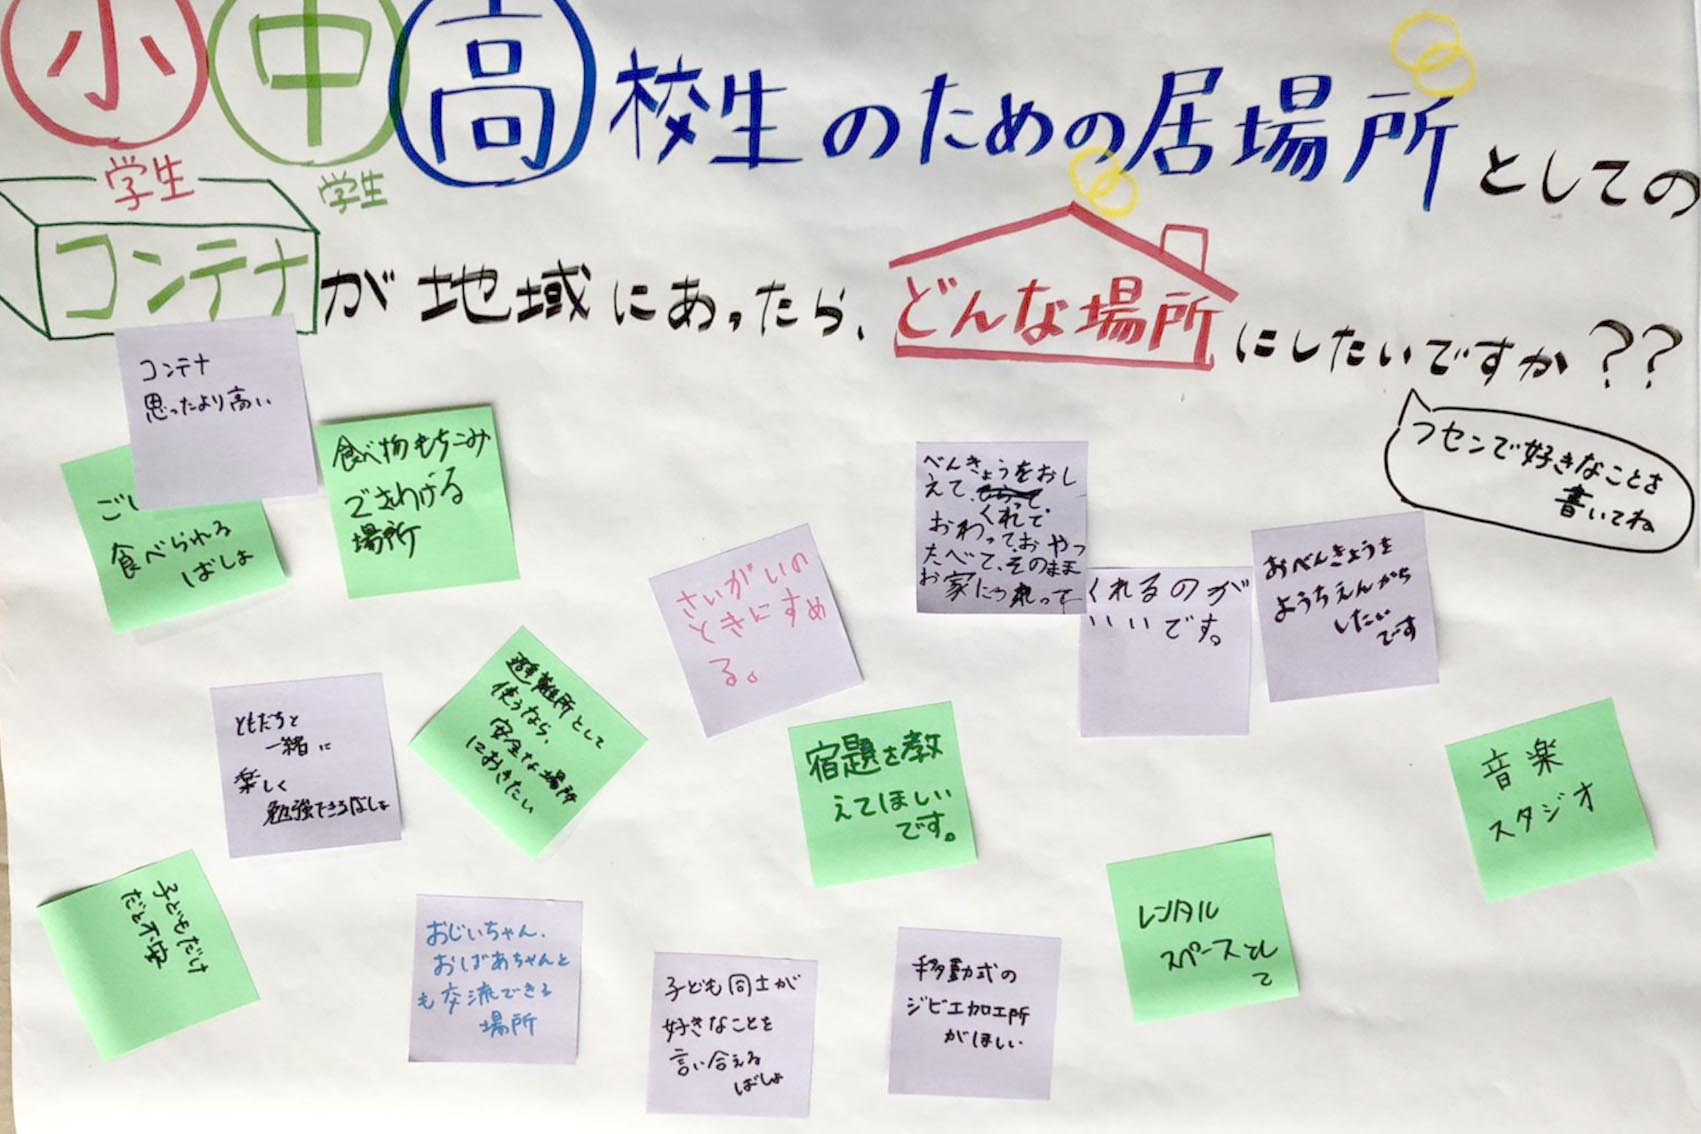 小 中 高校生のための居場所としての
学生 学生
コンテナが地域にあったら、どんな場所にしたいですか??
フセンで好きなことを
書いてね
コンテナ
思ったより高い
ごし
食べられる
ばしょ
食べ物もちこみ
でさわげる
場所
べんきょうをおし
えて、
くれて
おわって、おやつ
たべて、そのまま
お家につれって
くれるのが
いいです。
おべんきょうを
ようちえんがら
したい
です
さいがいの
ときにすめ
る。
ともだちと
一緒に
楽しく
勉強できるばしょ
避難所として
使うなら、
安全な場所
におきたい
宿題を教
えてほしい
です。
音楽
スタジオ
子どもだけ
だと不安
おじいちゃん、
おばあちゃんと
も交流できる
場所
子ども同士が
好きなことを
言い合える
ばしょ
移動式の
ジビエ加工所
がほしい
レンタル
スペースとし
て